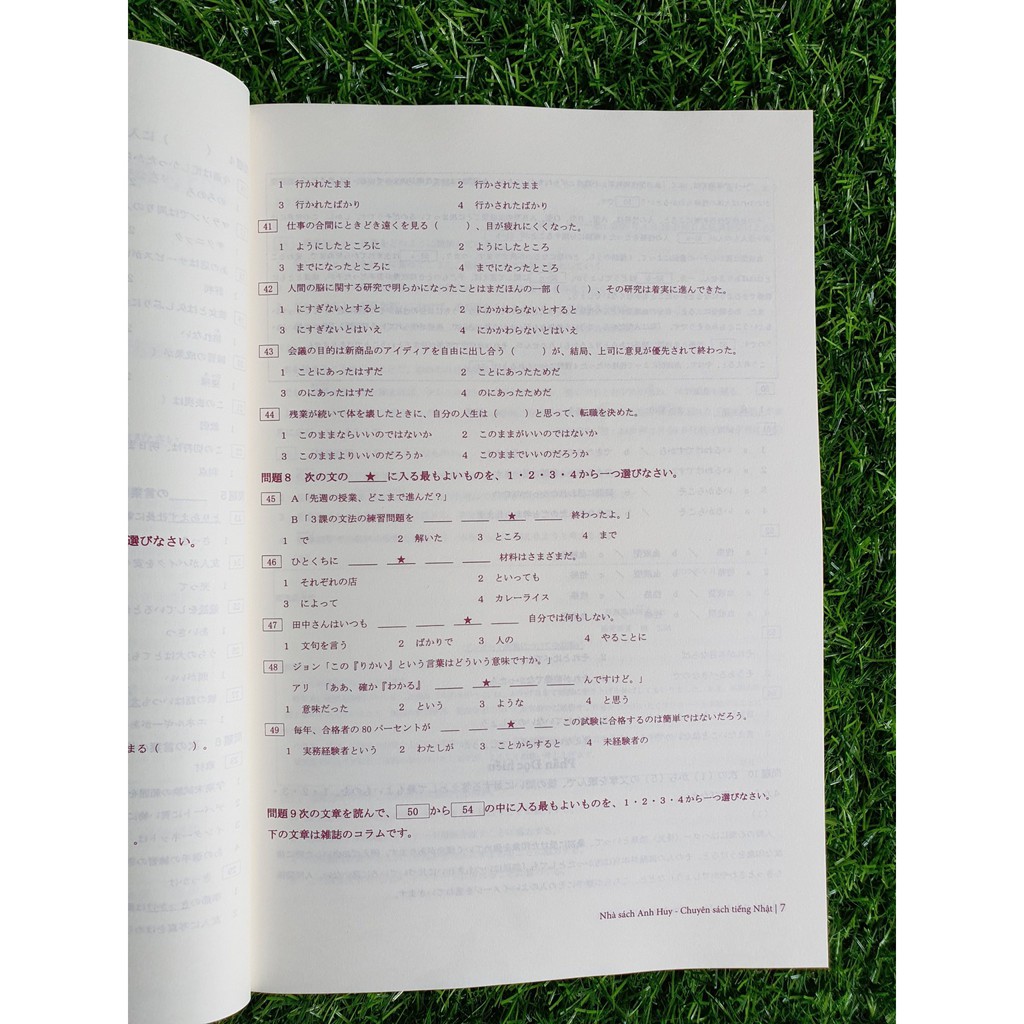 1 行かれたまま 2 行かされたまま
3 行かれたばかり 4 行かさればかり
41 仕事の合間にときどき遠くを見る（ ）、目が疲れにくくなった。
1 ようにしたところに 2 ようにしたところ
3 までになったところに 4 までになったところ
42 人間の脳に関する研究で明らかになったことはまだほんの一部（ ）、その研究は着実に進んできた。
1 にすぎないとすると 2 にかかわらないとすると
3 にすぎないとはいえ 4 にかかわらないとはいえ
43 会議の目的は新商品のアイディアを自由に出し合う（ ）が、結局、上司に意見が優先されて終わった。
1 ことにあったはずだ 2 ことにあったためだ
3 のにあったはずだ 4 のにあったためだ
44 残業が続いて体を壊したときに、自分の人生は（ ）と思って、転職を決めた。
1 このままならいいのではないか 2 このままがいいのではないか
3 このままよりいいのだろうか 4 このままでいいのだろうか
問題８ 次の文の ★ に入る最もよいものを、１・２・３・４から一つ選びなさい。
45 A「先週の授業、どこまで進んだ？」
B「３課の文法の練習問題を ___ ___ ★ ___ 終わったよ。」
1 で 2 解いた 3 ところ 4 まで
46 ひとくちに ___ ★ ___ ___ 材料はさまざまだ。
1 それぞれの店 2 といっても
3 によって 4 カレーライス
47 田中さんはいつも ___ ___ ★ ___ 自分では何もしない。
1 文句を言う 2 ばかりで 3 人の 4 やることに
48 ジョン「この『りかい』という言葉はどういう意味ですか。」
アリ 「ああ、確か『わかる』 ___ ★ ___ ___ んですけど。」
1 意味だった 2 という 3 ような 4 と思う
49 毎年、合格者の 80 パーセントが ___ ___ ★ ___ この試験に合格するのは簡単ではないだろう。
1 実務経験者という 2 わたしが 3 ことからすると 4 未経験者の
問題９次の文章を読んで、 50 から 54 の中に入る最もよいものを、１・２・３・４から一つ選びなさい。
下の文章は雑誌のコラムです。
Nhà sách Anh Huy - Chuyên sách tiếng Nhật | 7
選びなさい。
まる（ ）。